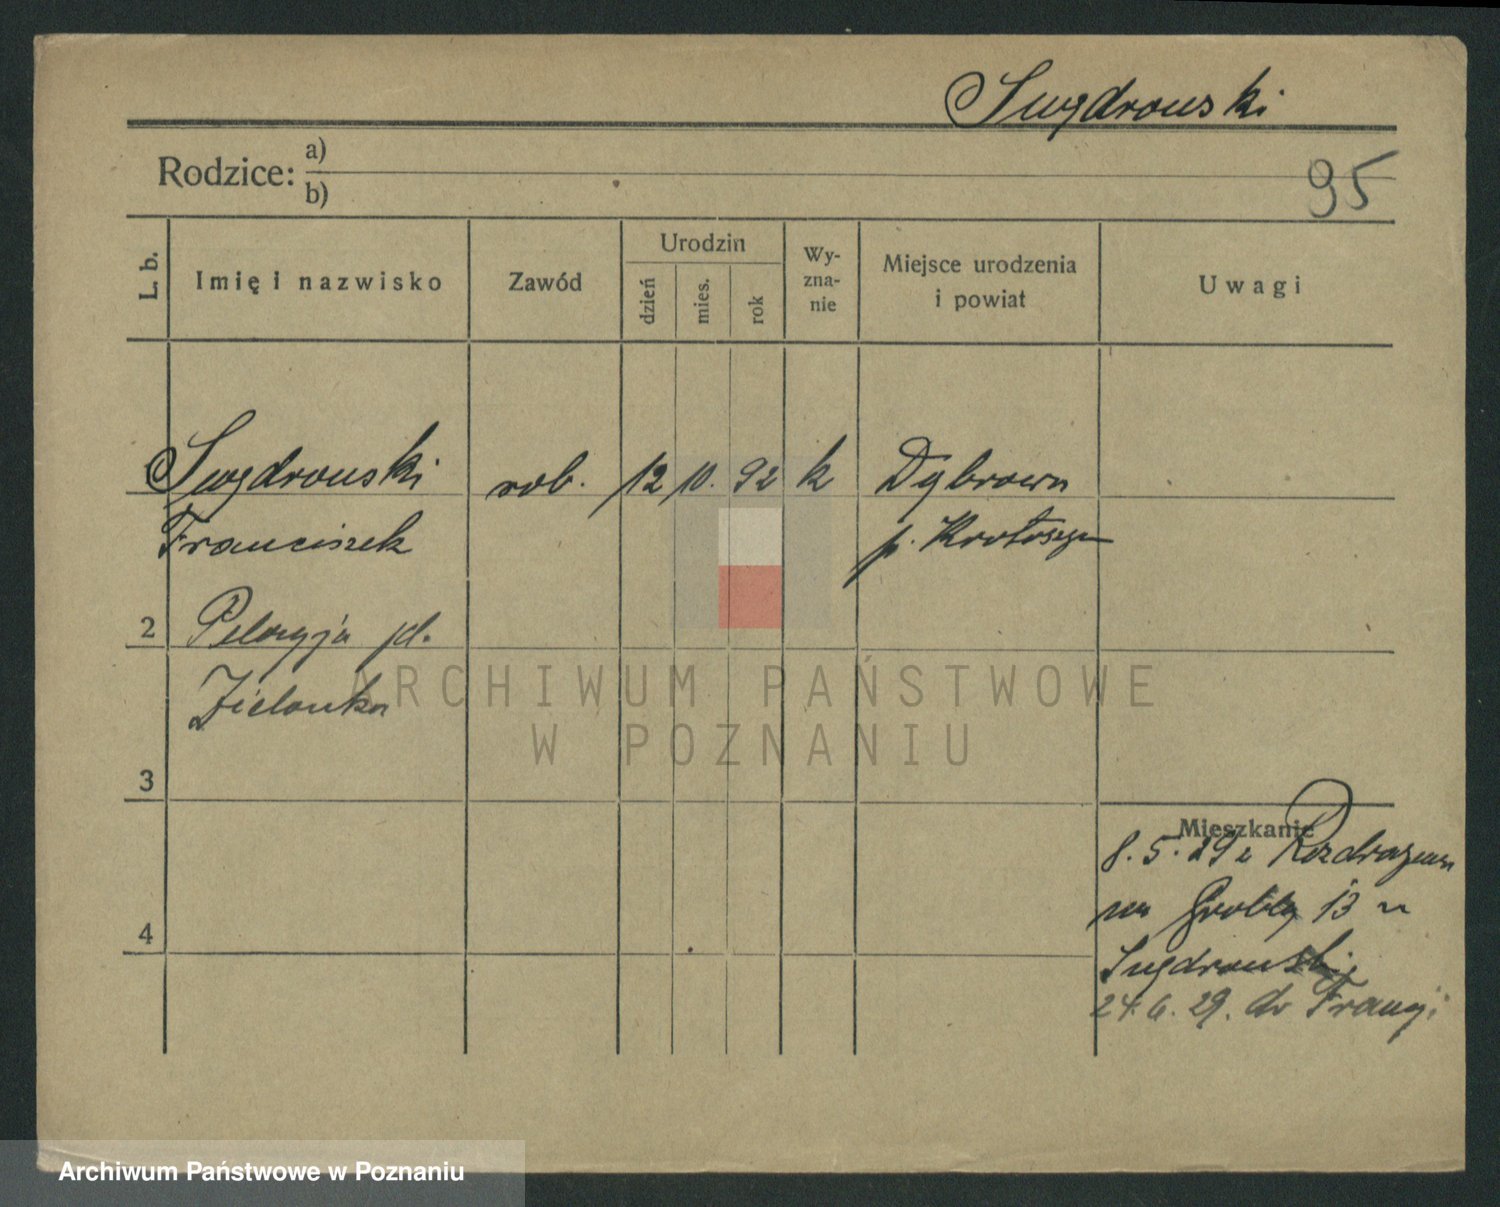 Sugdrowski
Rodzice: a)
b)
95
L. b.
Imię i nazwisko
Zawód
Urodzin
dzień
mies.
rok
Wy-
zna-
nie
Miejsce urodzenia
i powiat
Uwagi
Sugdrowski rob. 12 10. 92 k Dąbrowa
Franciszek p. Krotoszyn
2 Pelagja pd.
Zielonka
ARCHIWUM PAŃSTWOWE
W POZNANIU
3
Mieszkanie
8. 5. 29 z Rozdrażewa
na Grobla 13 u
4
Sugdrowski
24. 6. 29. do Francji
Archiwum Państwowe w Poznaniu